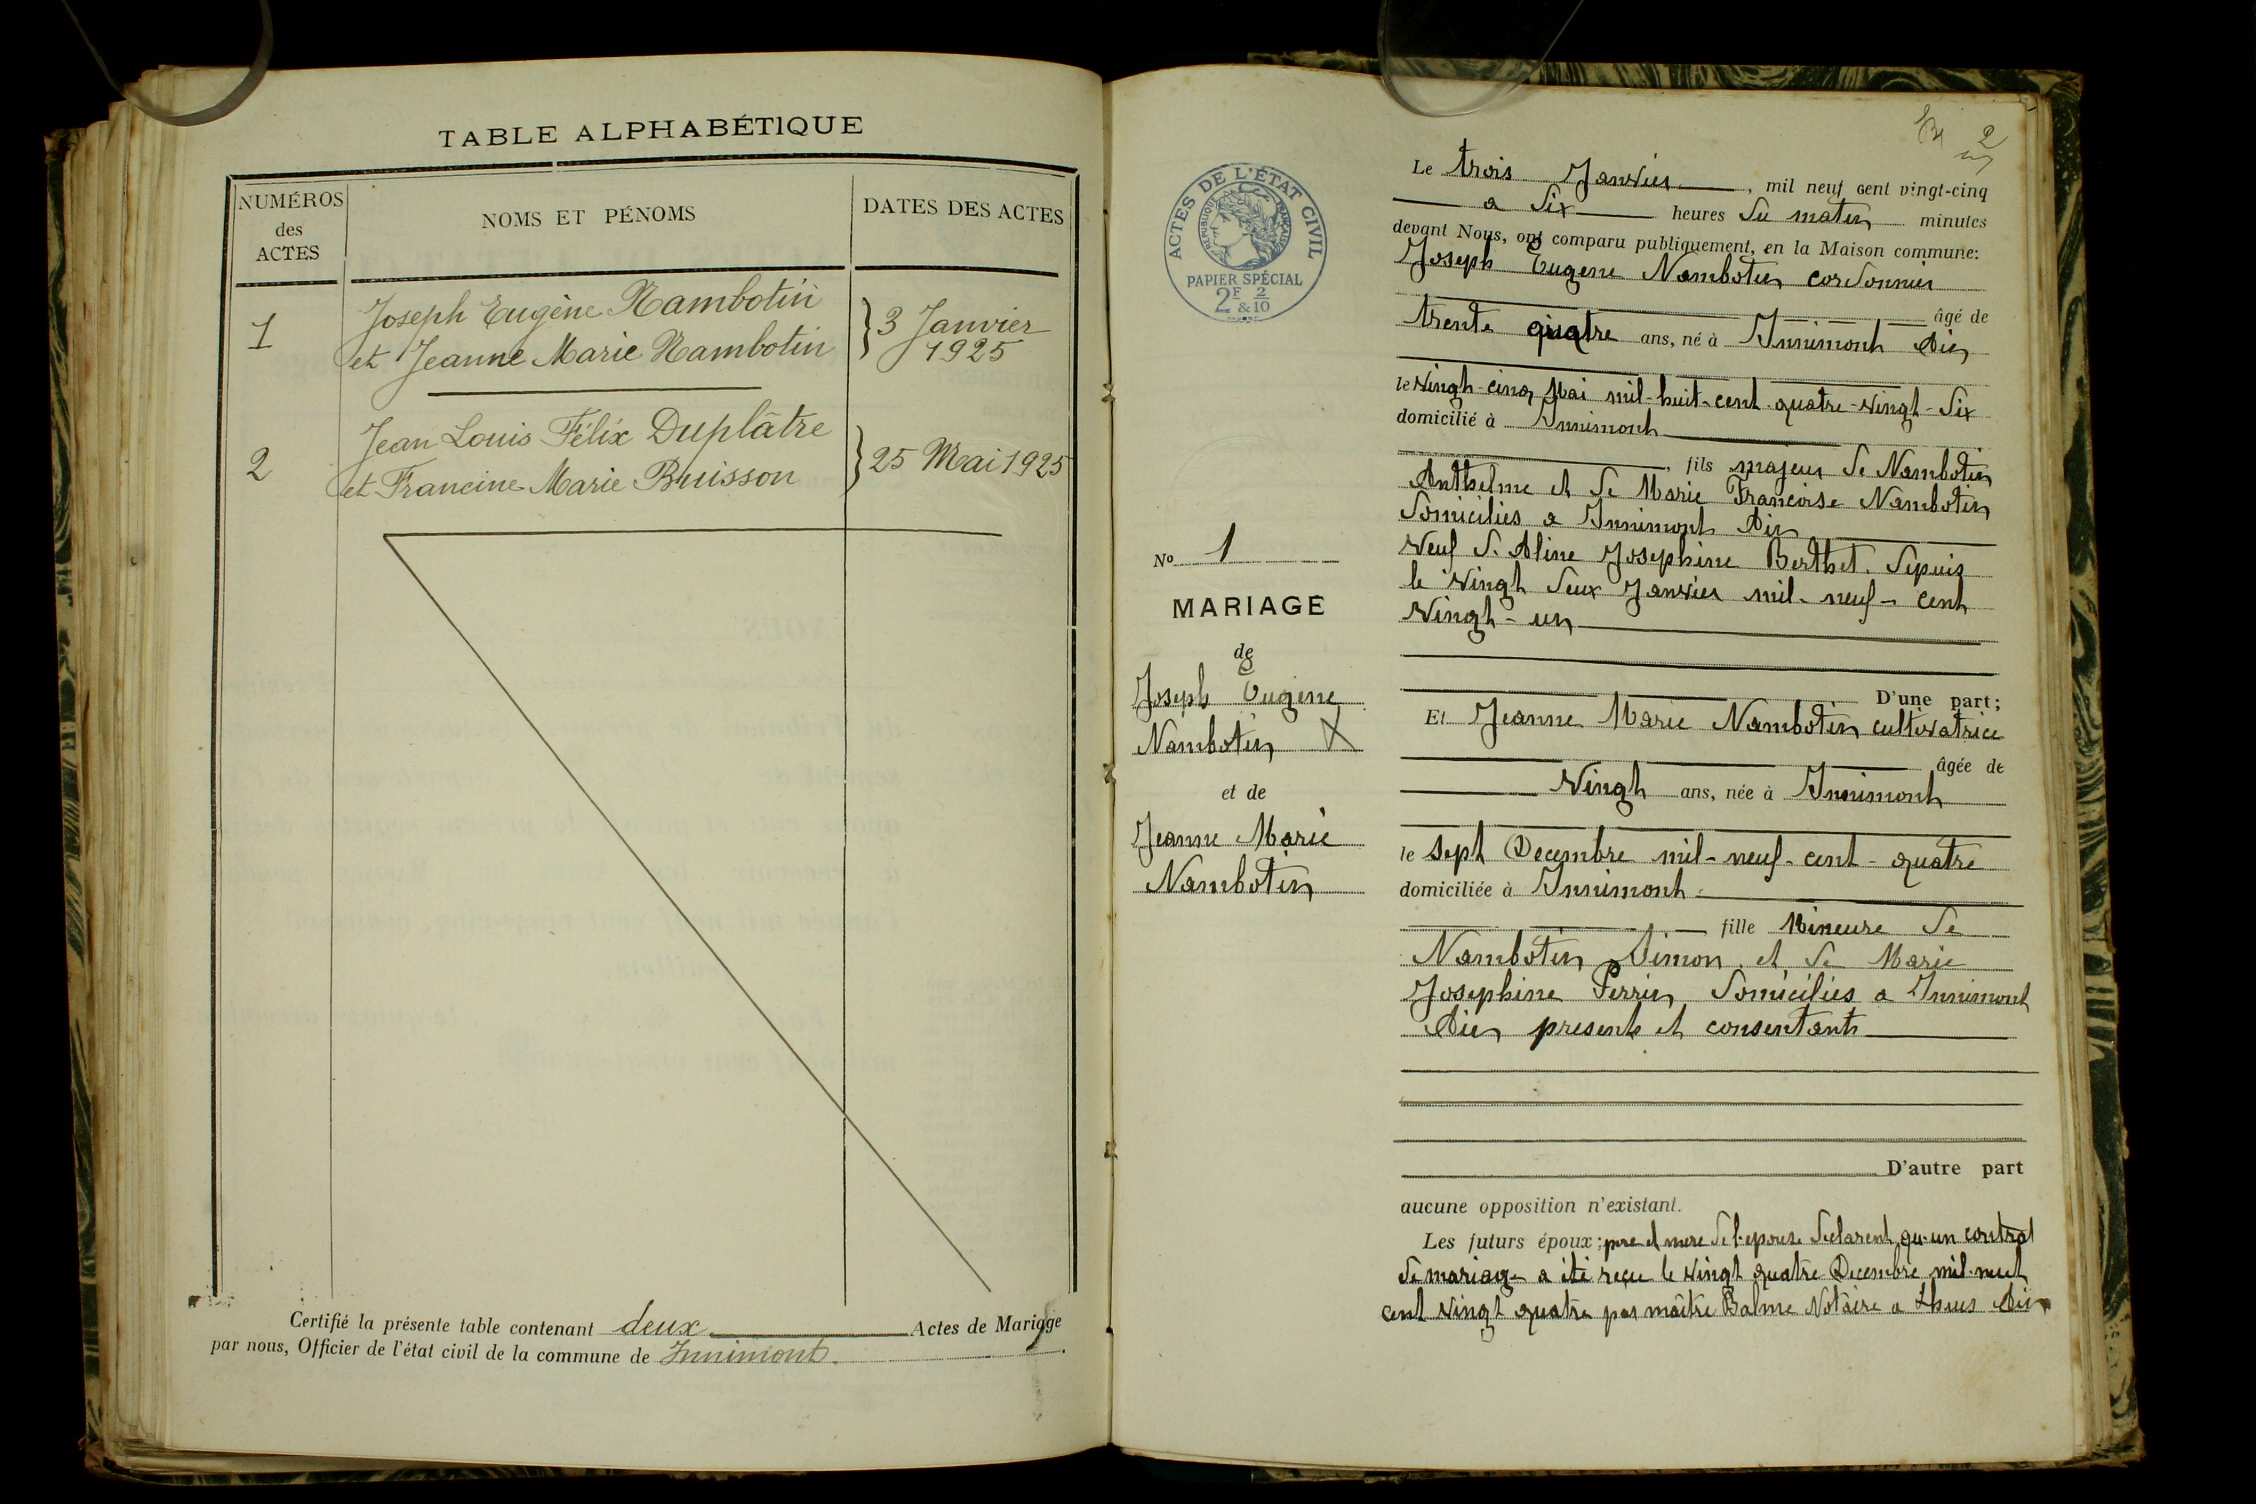 TABLE ALPHABÉTIQUE
NUMÉROS
des
ACTES
NOMS ET PÉNOMS
DATES DES ACTES
1
Joseph Eugène Nambotin
et Jeanne Marie Nambotin
3 Janvier
1925
2
Jean Louis Félix Duplâtre
et Francine Marie Buisson
25 Mai 1925
Certifié la présente table contenant deux Actes de Mariage
par nous, Officier de l'état civil de la commune de Innimont.
2
ACTES DE L'ÉTAT CIVIL
RÉPUBLIQUE FRANÇAISE
PAPIER SPÉCIAL
2F 2
&10
No 1
MARIAGE
de
Joseph Eugene
Nambotin X
et de
Jeanne Marie
Nambotin
Le trois Janvier, mil neuf cent vingt-cinq
a six heures du matin minutes
devant Nous, ont comparu publiquement, en la Maison commune:
Joseph Eugene Nambotin cordonnier
âgé de
trente quatre ans, né à Innimont Ain
le vingt-cinq Mai mil-huit-cent quatre-vingt-dix
domicilié à Innimont
, fils majeur de Nambotin
Anthelme et de Marie Francoise Nambotin
domicilies a Innimont Ain
Veuf d. Aline Josephine Berthet. depuis
le vingt deux Janvier mil-neuf-cent
vingt-un
D'une part;
Et Jeanne Marie Nambotin cultivatrice
âgée de
Vingt ans, née à Innimont
le sept Decembre mil-neuf-cent-quatre
domiciliée à Innimont
fille Mineure de
Nambotin Simon et de Marie
Josephine Perrin domicilies a Innimont
Ain presents et consentants
D'autre part
aucune opposition n'existant.
Les futurs époux; pere et mere de l'epouse declarent qu'un contrat
de mariage a été reçu le vingt quatre Decembre mil-neuf
cent vingt quatre par maître Balme Notaire a Lhuis Ain